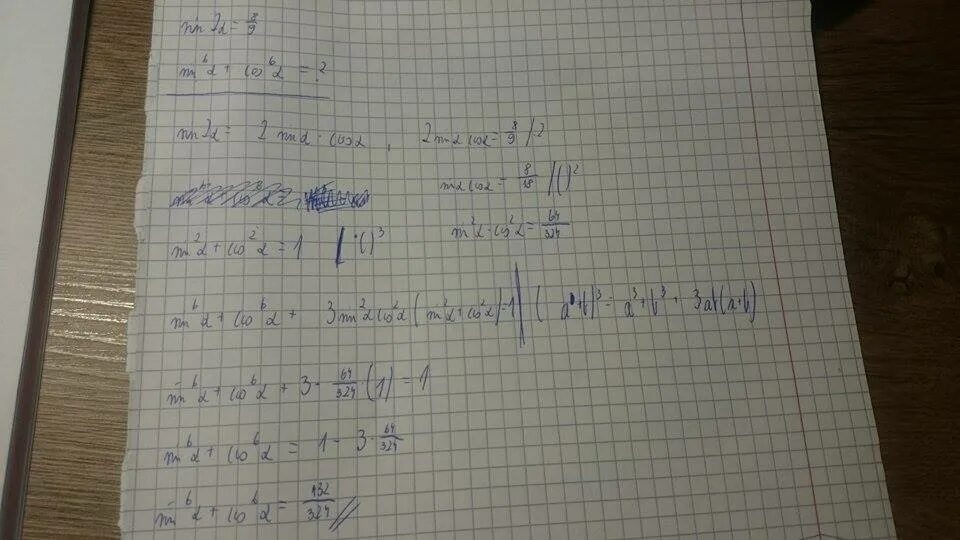 sin 2α = 8/9
sin⁶α + cos⁶α = ?
sin 2α = 2 sinα · cosα , 2 sinα cosα = 8/9 /:2
sinα cosα = 8/18 /( )²
sin²α · cos²α = 64/324
sin²α + cos²α = 1 | ·( )³
sin⁶α + cos⁶α + 3 sin²α cos²α (sin²α + cos²α) = 1 | (a + b)³ = a³ + b³ + 3ab(a+b)
sin⁶α + cos⁶α + 3 · 64/324 · (1) = 1
sin⁶α + cos⁶α = 1 - 3 · 64/324
sin⁶α + cos⁶α = 132/324 //